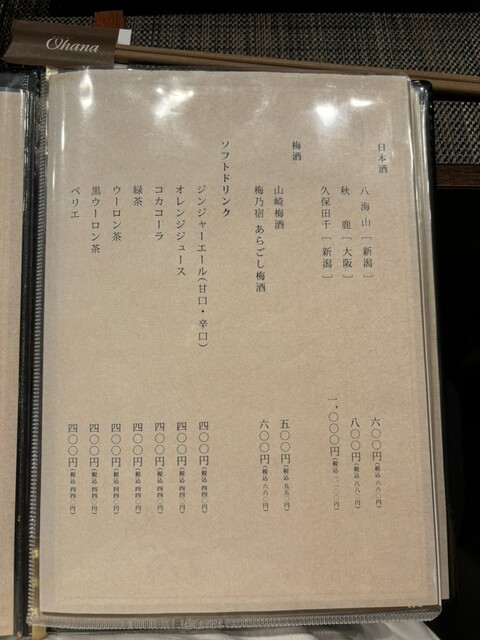 Ohana
日本酒
八海山［新潟］ 六〇〇円（税込 六六〇円）
秋鹿［大阪］ 八〇〇円（税込 八八〇円）
久保田千［新潟］ 一、〇〇〇円（税込 一、一〇〇円）
梅酒
山崎梅酒 五〇〇円（税込 五五〇円）
梅乃宿 あらごし梅酒 六〇〇円（税込 六六〇円）
ソフトドリンク
ジンジャーエール（甘口・辛口） 四〇〇円（税込 四四〇円）
オレンジジュース 四〇〇円（税込 四四〇円）
コカコーラ 四〇〇円（税込 四四〇円）
緑茶 四〇〇円（税込 四四〇円）
ウーロン茶 四〇〇円（税込 四四〇円）
黒ウーロン茶 四〇〇円（税込 四四〇円）
ペリエ 四〇〇円（税込 四四〇円）